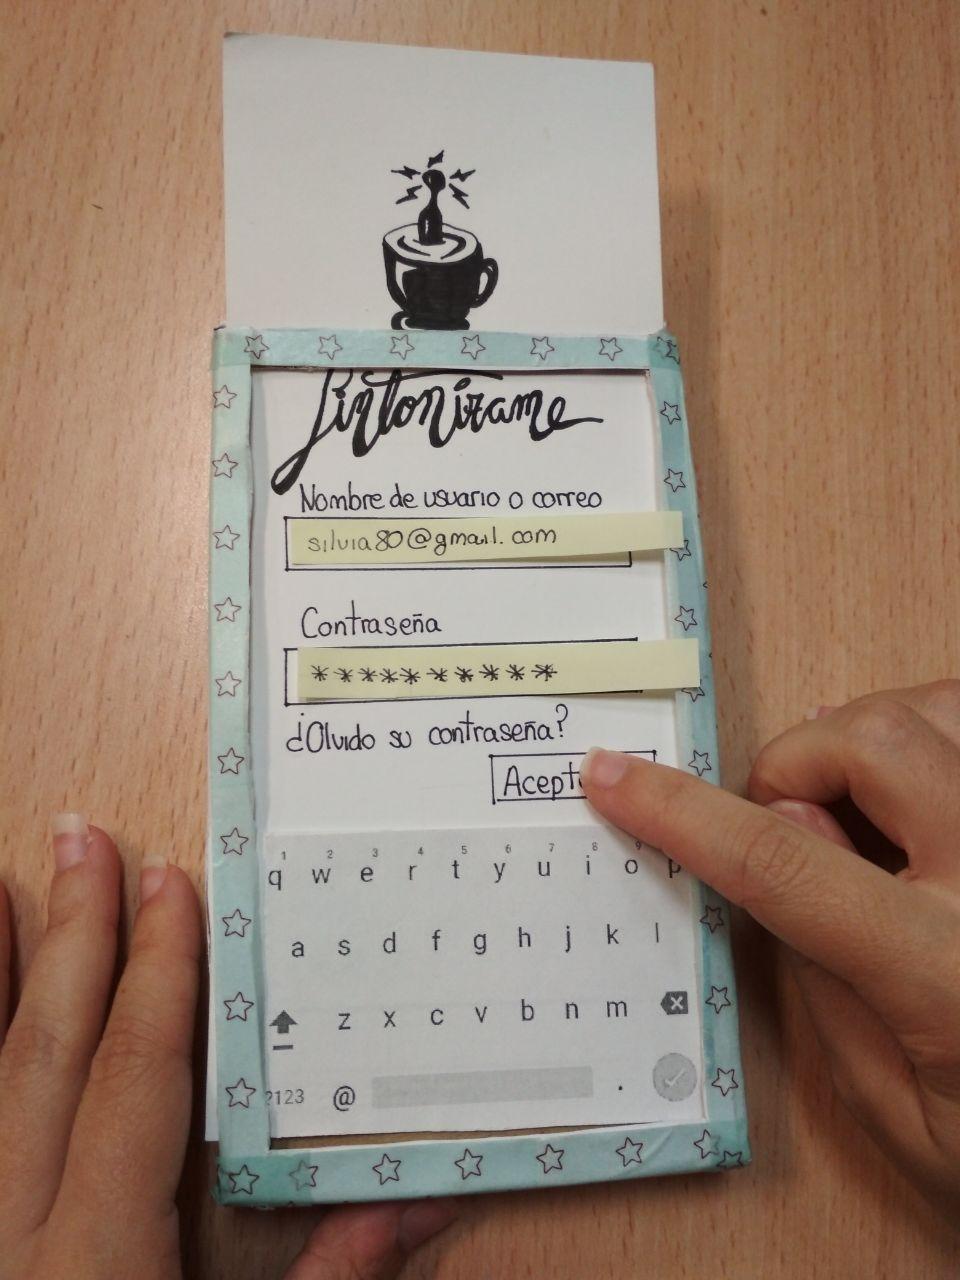 Sintonízame
Nombre de usuario o correo
silvia80@gmail.com
Contraseña
**********
¿Olvido su contraseña?
Acept
1 2 3 4 5 6 7 8 9
q w e r t y u i o p
a s d f g h j k l
z x c v b n m
?123 @ .